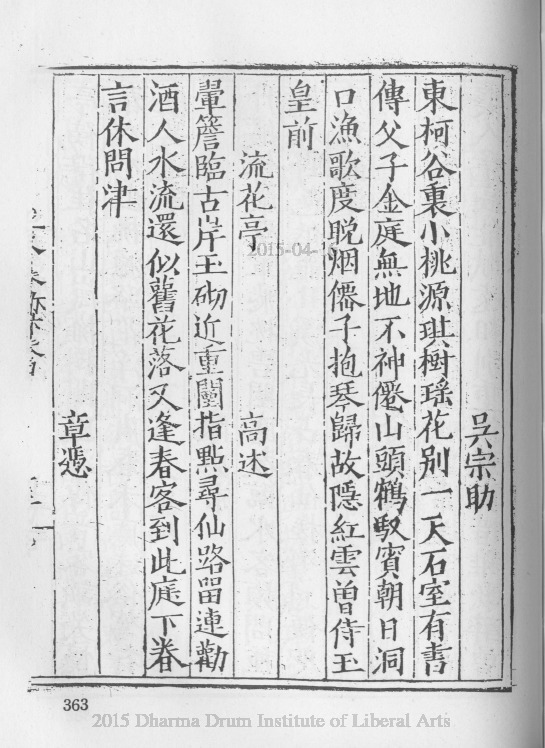 吳宗助
東柯谷裏小桃源琪樹瑶花别一天石室有書
傳父子金庭無地不神僊山頭鶴馭賓朝日洞
口漁歌度晚烟僊子抱琴歸故隱紅雲曽侍玉
皇前
流花亭 高述
翬簷臨古岸玉砌近重闉指點尋仙路留連勸
酒人水流還似舊花落又逢春客到此庭下眷
言休問津
章憑
363
2015-04-
2015 Dharma Drum Institute of Liberal Arts